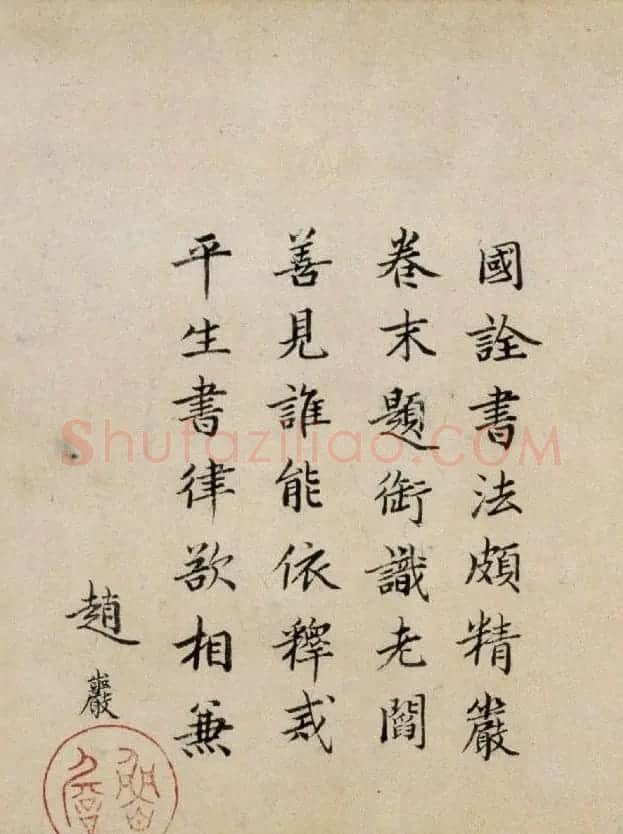 國詮書法頗精嚴
卷末題銜識老閻
善見誰能依釋戒
平生書律欲相兼
趙巖
Shufaziliao.COM